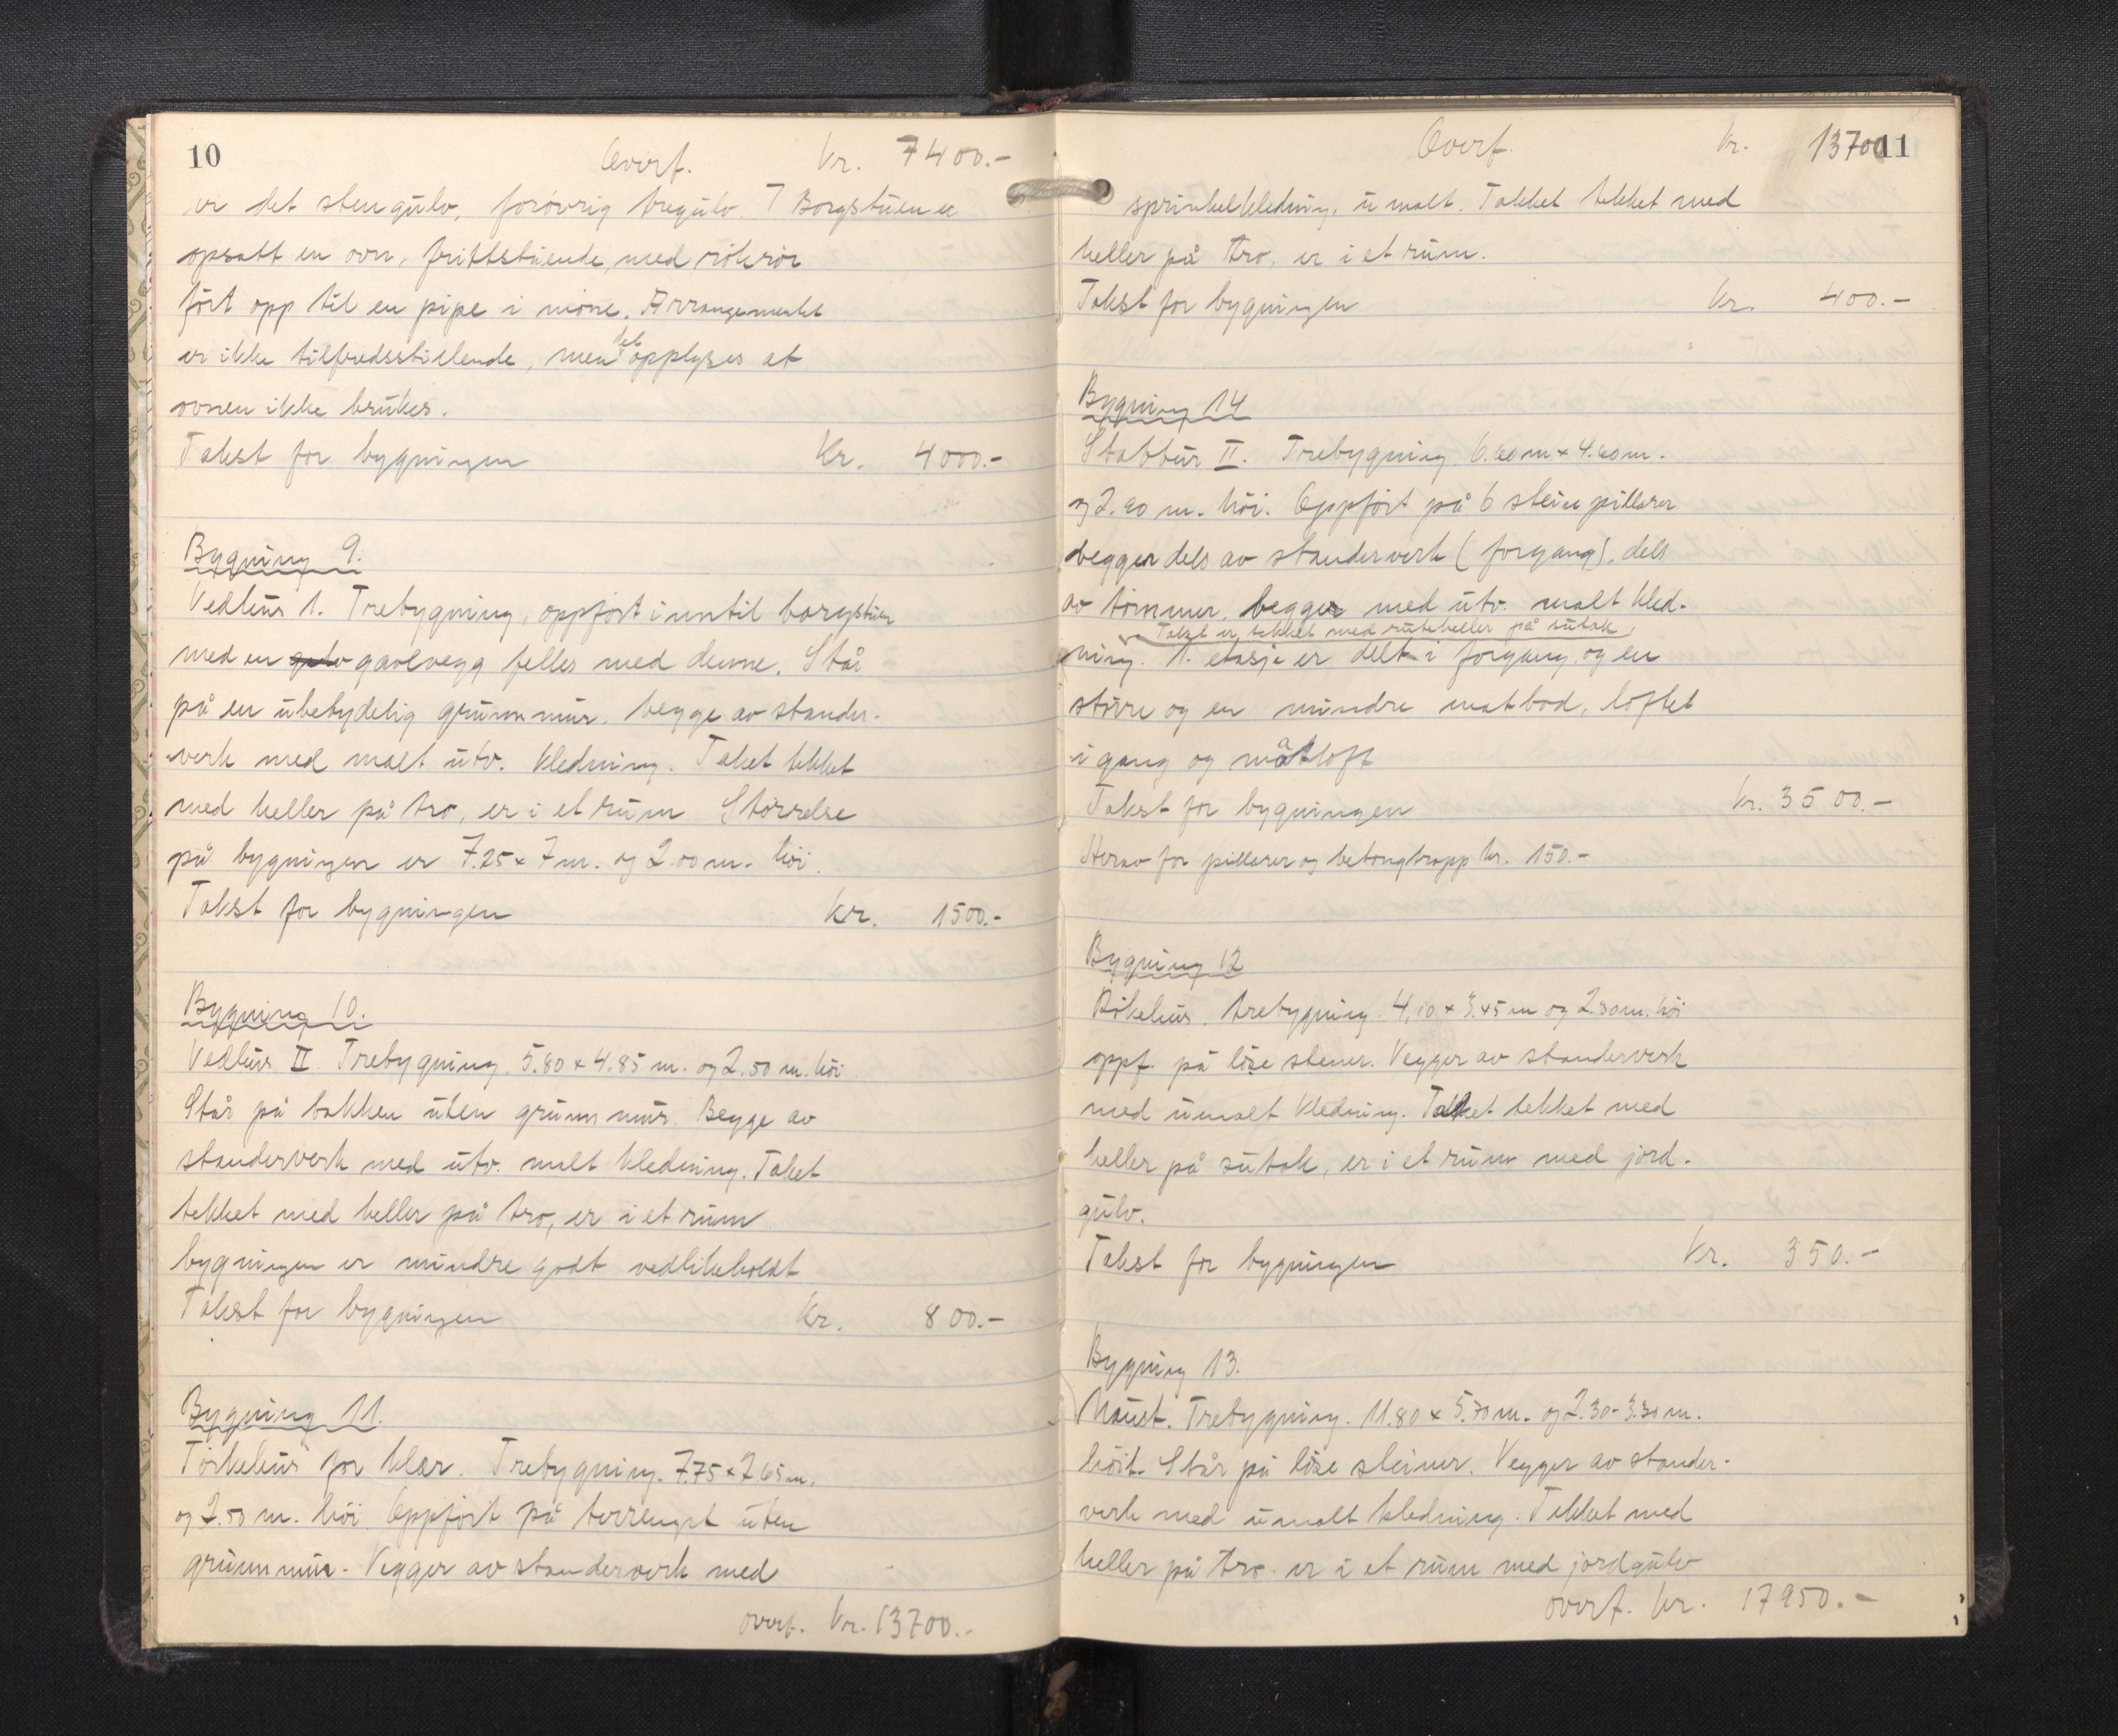 10
Overf. Kr. 7400.-
er det stengulv, forøvrig tregulv. I Borgstuen er
opsatt en ovn, frittstående, med rökrör
fört opp til en pipe i möne. Arrangementet
er ikke tilfredsstillende, men det opplyses at
ovnen ikke brukes.
Takst for bygningen Kr. 4000.-
Bygning 9.
Vedhus 1. Trebygning, oppfört inntil borgstuen
med en gulv gavlvegg felles med denne. Står
på en ubetydelig grunnmur. Vegge av stender-
verk med malt utv. kledning. Taket tekket
med heller på tro, er i et rum Störrelse
på bygningen er 7.25 x 7 m. og 2.00 m. höi.
Takst for bygningen Kr. 1500.-
Bygning 10.
Vedhus II. Trebygning. 5.80 x 4.85 m. og 2.50 m. höi
Står på bakken uten grunnmur. Vegge av
standerverk med utv. malt kledning. Taket
tekket med heller på tro, er i et rum
bygningen er mindre godt vedlikeholdt
Takst for bygningen Kr. 800.-
Bygning 11.
Törkehus for klær. Trebygning. 7.75 x 7.65 m.
og 2.50 m. höi. Oppfört på terrenget uten
grunnmur. Vegger av standerverk med
overf. Kr. 13700.-
11
Overf. Kr. 13700
sprinkelkledning, umalt. Takket tekket med
heller på tro, er i et rum.
Takst for bygningen Kr. 400.-
Bygning 14
Stabbur II. Trebygning 6.60 m x 4.60 m.
og 2.90 m. höi. Oppfört på 6 stein pillarer
vegger dels av standerverk (forgang), dels
av tömmer, begge med utv. malt kled-
Taket er tekket med ruteheller på sutak,
ning. 1. etasje er delt i forgang og en
större og en mindre matbod, loftet
i gang og matloft
Takst for bygningen Kr. 3500.-
Herav for pillarer og betongtrapp kr. 150.-
Bygning 12
Rökehus. trebygning. 4,10 x 3.45 m og 2.30 m. höi
oppf. på löse stener. Vegger av standerverk
med umalt kledning. Taket tekket med
heller på sutak, er i et rum med jord-
gulv.
Takst for bygningen Kr. 350.-
Bygning 13.
Naust. Trebygning. 11.80 x 5.70 m. og 2.30-3.30 m.
höit. Står på löse steiner. Vegger av stander-
verk med umalt kledning. Tekket med
heller på tro er i et rum med jordgulv
overf. kr. 17950.-